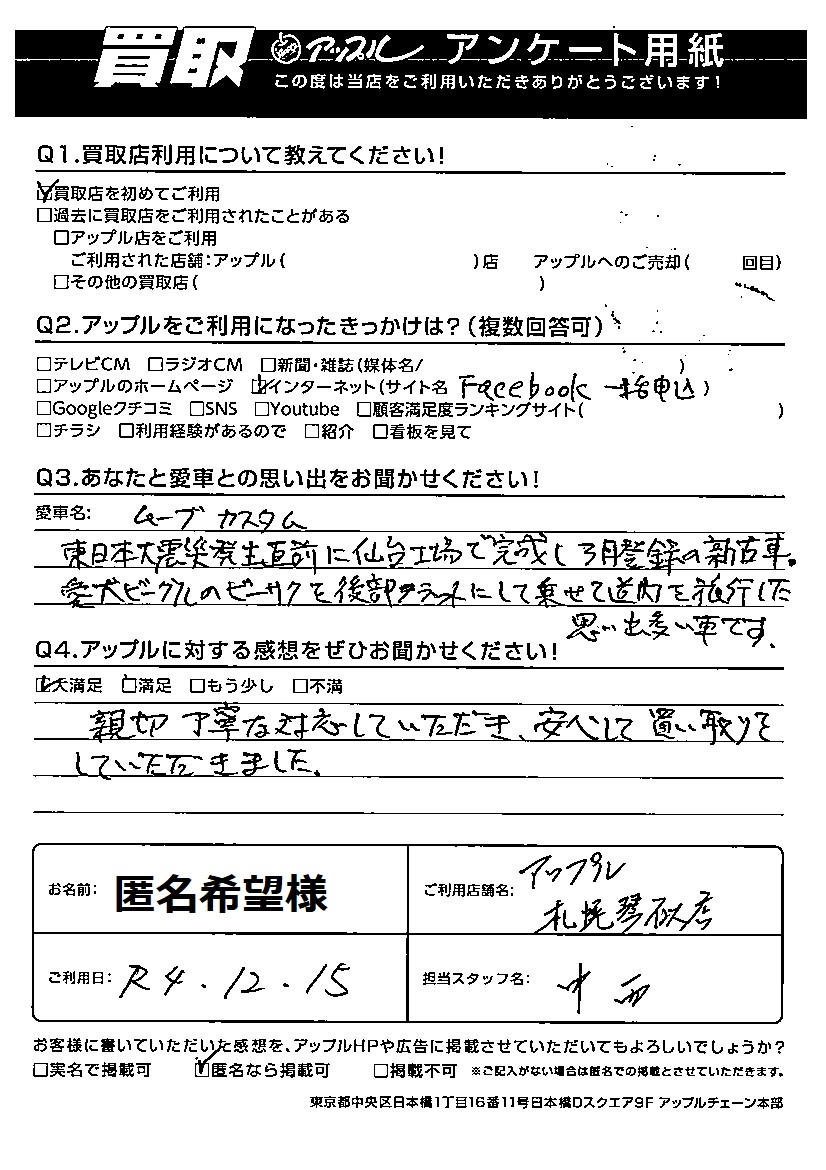 買取 アップル アンケート用紙
この度は当店をご利用いただきありがとうございます!
Q1.買取店利用について教えてください!
☑買取店を初めてご利用
□過去に買取店をご利用されたことがある
□アップル店をご利用
ご利用された店舗:アップル( )店 アップルへのご売却( 回目)
□その他の買取店( )
Q2.アップルをご利用になったきっかけは?(複数回答可)
□テレビCM □ラジオCM □新聞・雑誌(媒体名/ )
□アップルのホームページ ☑インターネット(サイト名 Facebook 一括申込)
□Googleクチコミ □SNS □Youtube □顧客満足度ランキングサイト( )
□チラシ □利用経験があるので □紹介 □看板を見て
Q3.あなたと愛車との思い出をお聞かせください!
愛車名: ムーブ カスタム
東日本大震災発生直前に仙台工場で完成し3月登録の新古車。
愛犬ビーグルのピーナクを後部フラットにして乗せて道内を旅行した
思い出多い車です.
Q4.アップルに対する感想をぜひお聞かせください!
☑大満足 □満足 □もう少し □不満
親切丁寧な対応していただき、安心して買い取りを
していただきました.
お名前: 匿名希望様
ご利用店舗名: アップル
札幌琴似店
ご利用日: R4.12.15
担当スタッフ名: 中西
お客様に書いていただいた感想を、アップルHPや広告に掲載させていただいてもよろしいでしょうか?
□実名で掲載可 ☑匿名なら掲載可 □掲載不可 ※ご記入がない場合は匿名での掲載とさせていただきます。
東京都中央区日本橋1丁目16番11号日本橋Dスクエア9F アップルチェーン本部